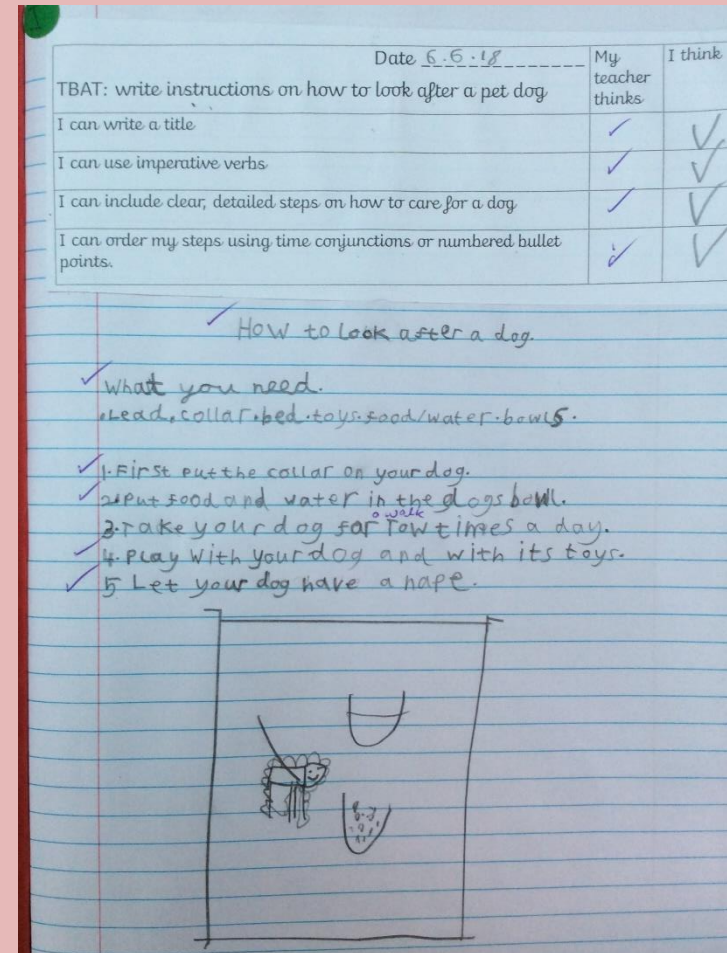 Date 6.6.18
My teacher thinks
I think
TBAT: write instructions on how to look after a pet dog
I can write a title
I can use imperative verbs
I can include clear, detailed steps on how to care for a dog
I can order my steps using time conjunctions or numbered bullet
points.
How to look after a dog.
What you need.
.Lead.collar.bed.toys.food/water.bowls.
1.First put the collar on your dog.
2.Put food and water in the dogs bowl.
a walk
3.Take your dog for Tow times a day.
4.Play with your dog and with its toys.
5 Let your dog have a nape.